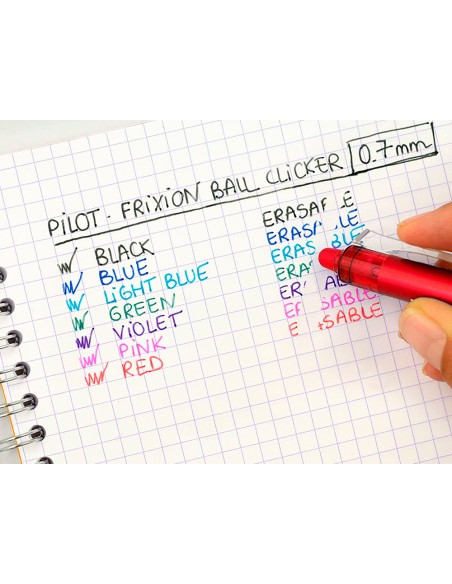 PILOT - FRIXION BALL CLICKER 0.7mm
BLACK
BLUE
LIGHT BLUE
GREEN
VIOLET
PINK
RED
ERASA E
ERASA LE
ERAS BLE
ERA
ER ABL
E SABLE
E SABLE